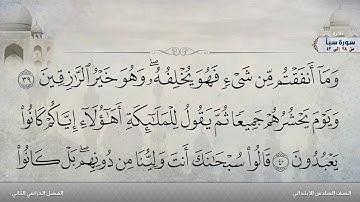 تلاوة
سورة سبأ
من ٢٨ إلى ٤٣
وَمَا أَنفَقْتُم مِّن شَيْءٍ فَهُوَ يُخْلِفُهُۥ ۖ وَهُوَ خَيْرُ ٱلرَّٰزِقِينَ ٣٩
وَيَوْمَ يَحْشُرُهُمْ جَمِيعًا ثُمَّ يَقُولُ لِلْمَلَٰٓئِكَةِ أَهَٰٓؤُلَآءِ إِيَّاكُمْ كَانُوا۟
يَعْبُدُونَ ٤٠ قَالُوا۟ سُبْحَٰنَكَ أَنتَ وَلِيُّنَا مِن دُونِهِم ۖ بَلْ كَانُوا۟
الصف السادس الابتدائي
الفصل الدراسي الثاني